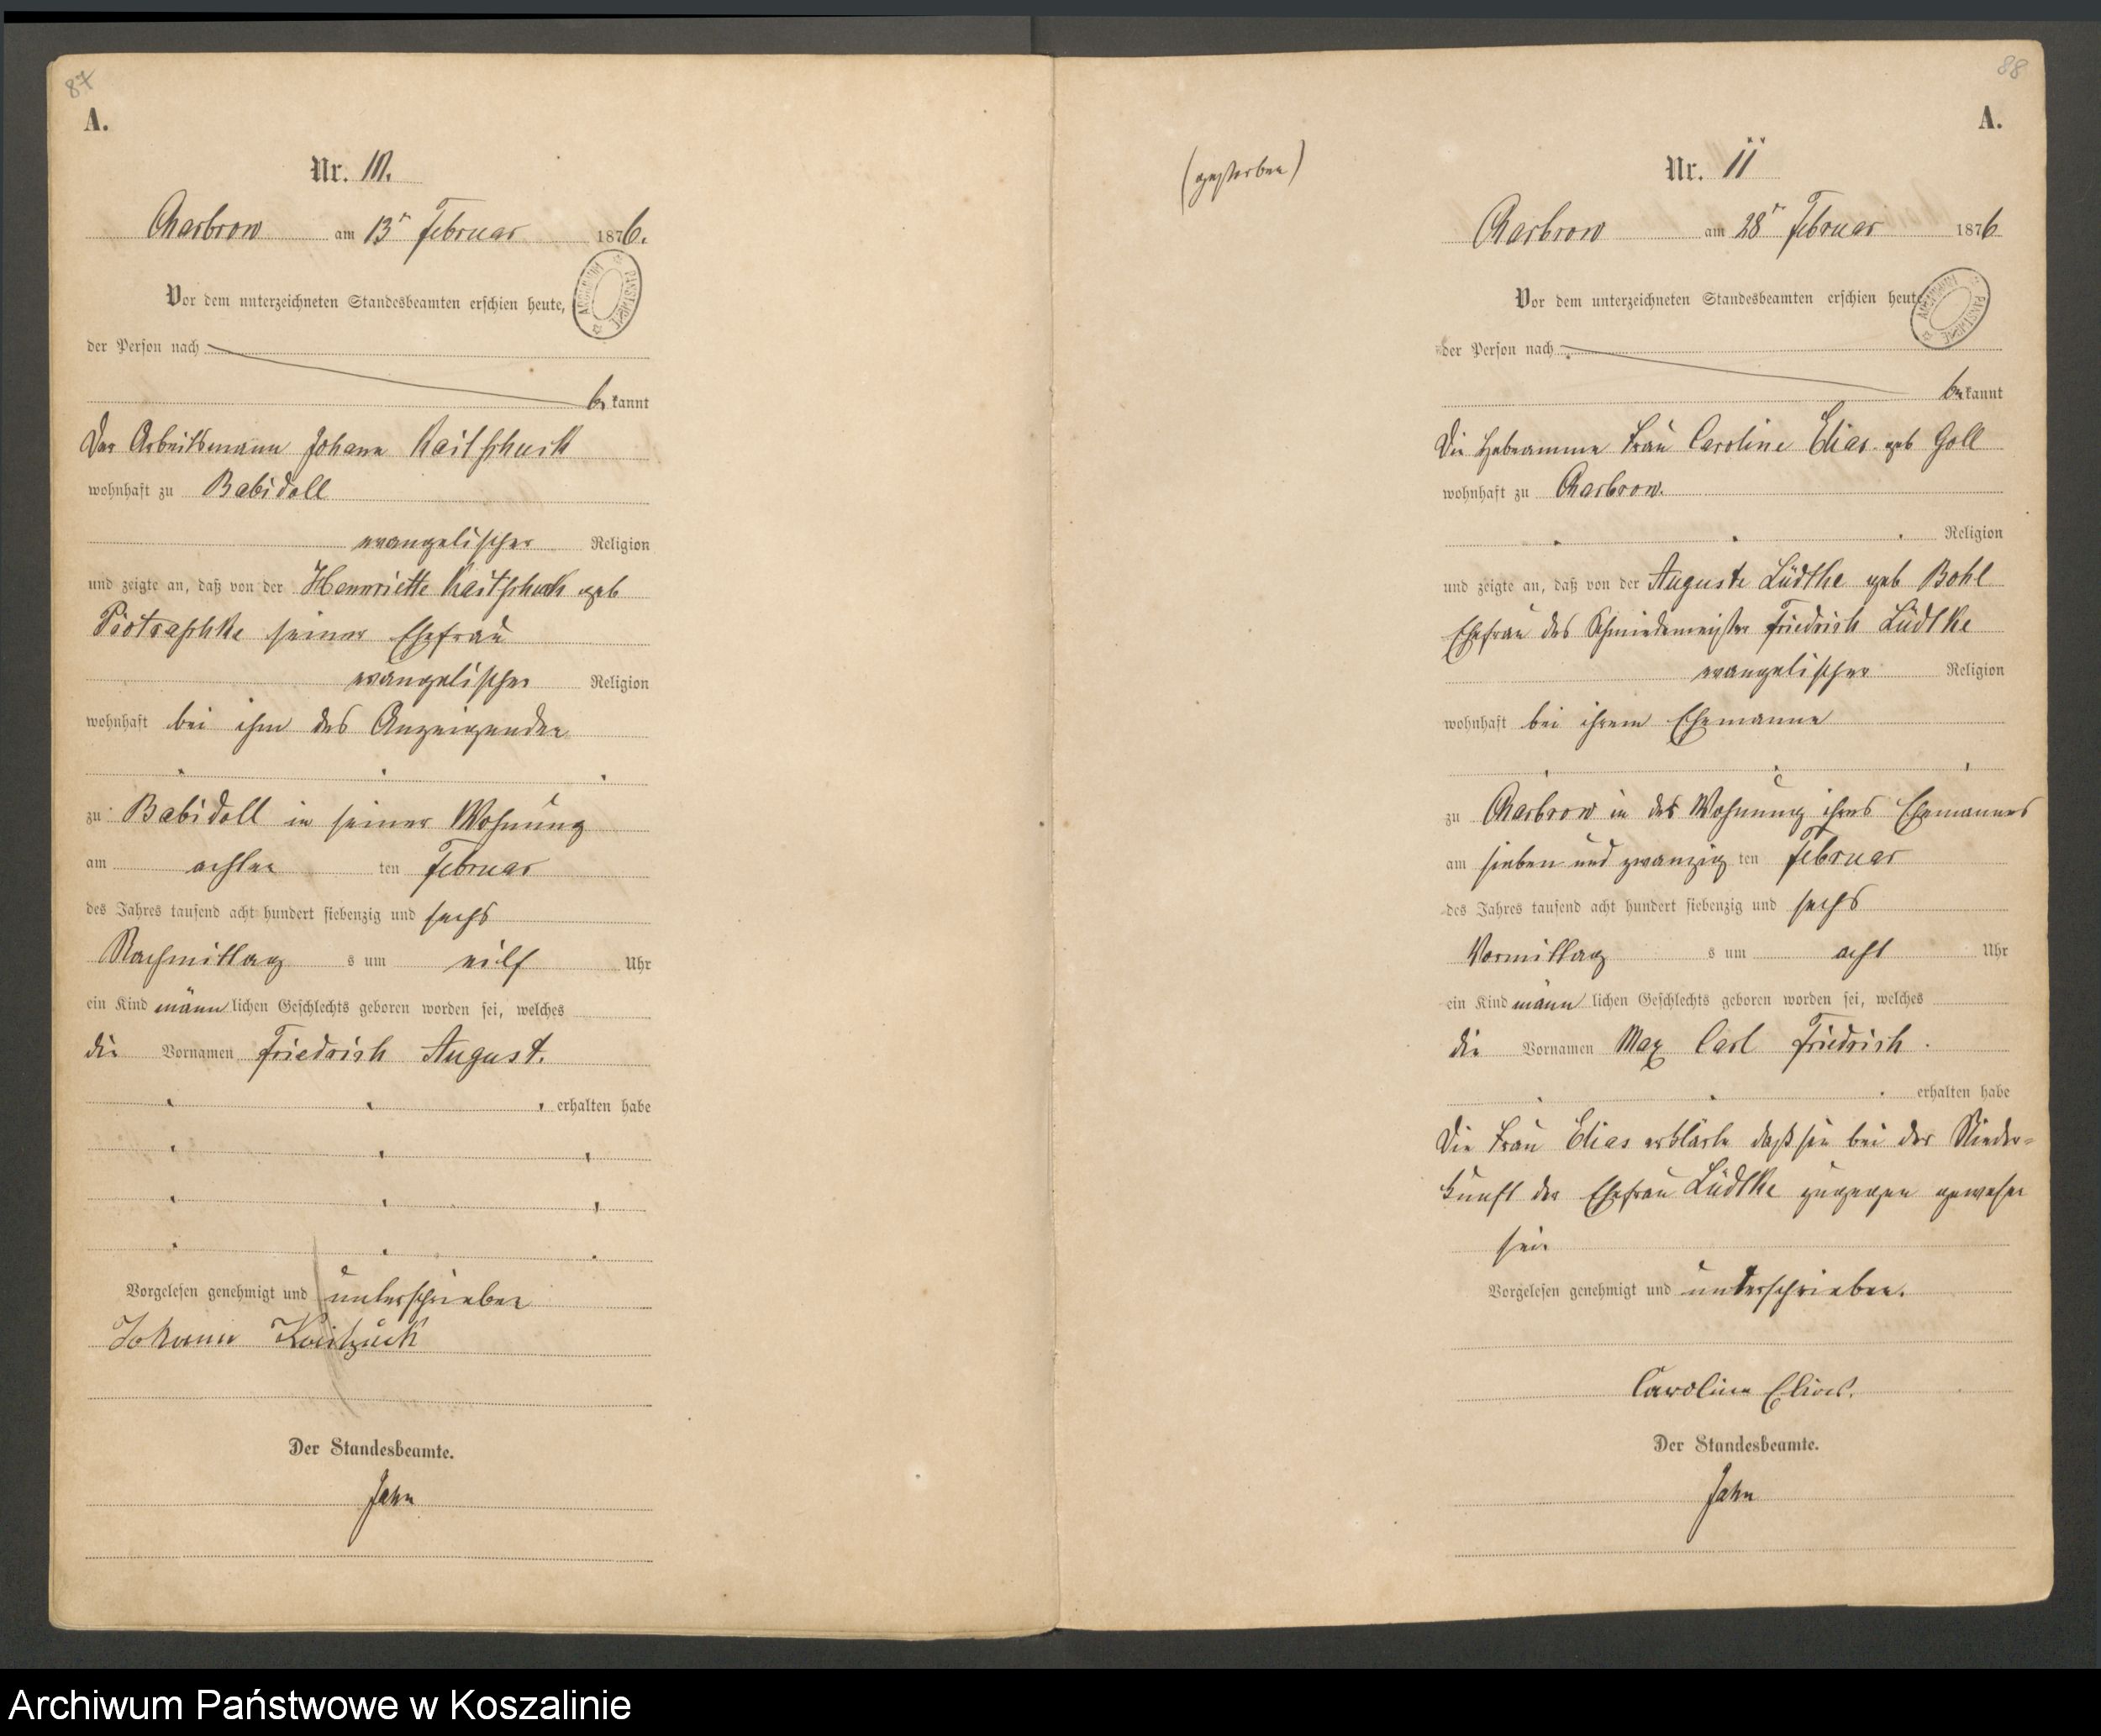 87
A.
Nr. 10.
Charbrow am 13n Februar 1876.
Vor dem unterzeichneten Standesbeamten erschien heute,
der Person nach
bekannt
Der Arbeitsmann Johann Kaitschuck
wohnhaft zu Babidoll
evangelischer Religion
und zeigte an, daß von der Hennriette Kaitschuck geb
Piotraschke seiner Ehefrau
evangelischer Religion
wohnhaft bei ihm des Anzeigenden
zu Babidoll in seiner Wohnung
am achten ten Februar
des Jahres tausend acht hundert siebenzig und sechs
Nachmittag s um eilf Uhr
ein Kind männlichen Geschlechts geboren worden sei, welches
die Vornamen Friedrich August.
erhalten habe
Vorgelesen genehmigt und unterschrieben
Johann
Der Standesbeamte.
Jahn
88
A.
(gestorben)
Nr. 11
Charbrow am 28n Februar 1876
Vor dem unterzeichneten Standesbeamten erschien heute
der Person nach
bekannt
Die Hebeamme Frau Caroline Elias geb Goll
wohnhaft zu Charbrow.
Religion
und zeigte an, daß von der Auguste Lüdtke geb Bohl
Ehefrau des Schmiedemeister Friedrich Lüdtke
evangelischer Religion
wohnhaft bei ihrem Ehemanne
zu Charbrow in der Wohnung ihres Ehemannes
am sieben und zwanzig ten Februar
des Jahres tausend acht hundert siebenzig und sechs
Vormittag s um acht Uhr
ein Kind männlichen Geschlechts geboren worden sei, welches
die Vornamen Max Carl Friedrich.
erhalten habe
Die Frau Elias erklärte daß sie bei der Nieder-
kunft der Ehefrau Lüdtke zugegen gewesen
sei.
Vorgelesen genehmigt und unterschrieben.
Caroline Elias.
Der Standesbeamte.
Jahn
Archiwum Państwowe w Koszalinie